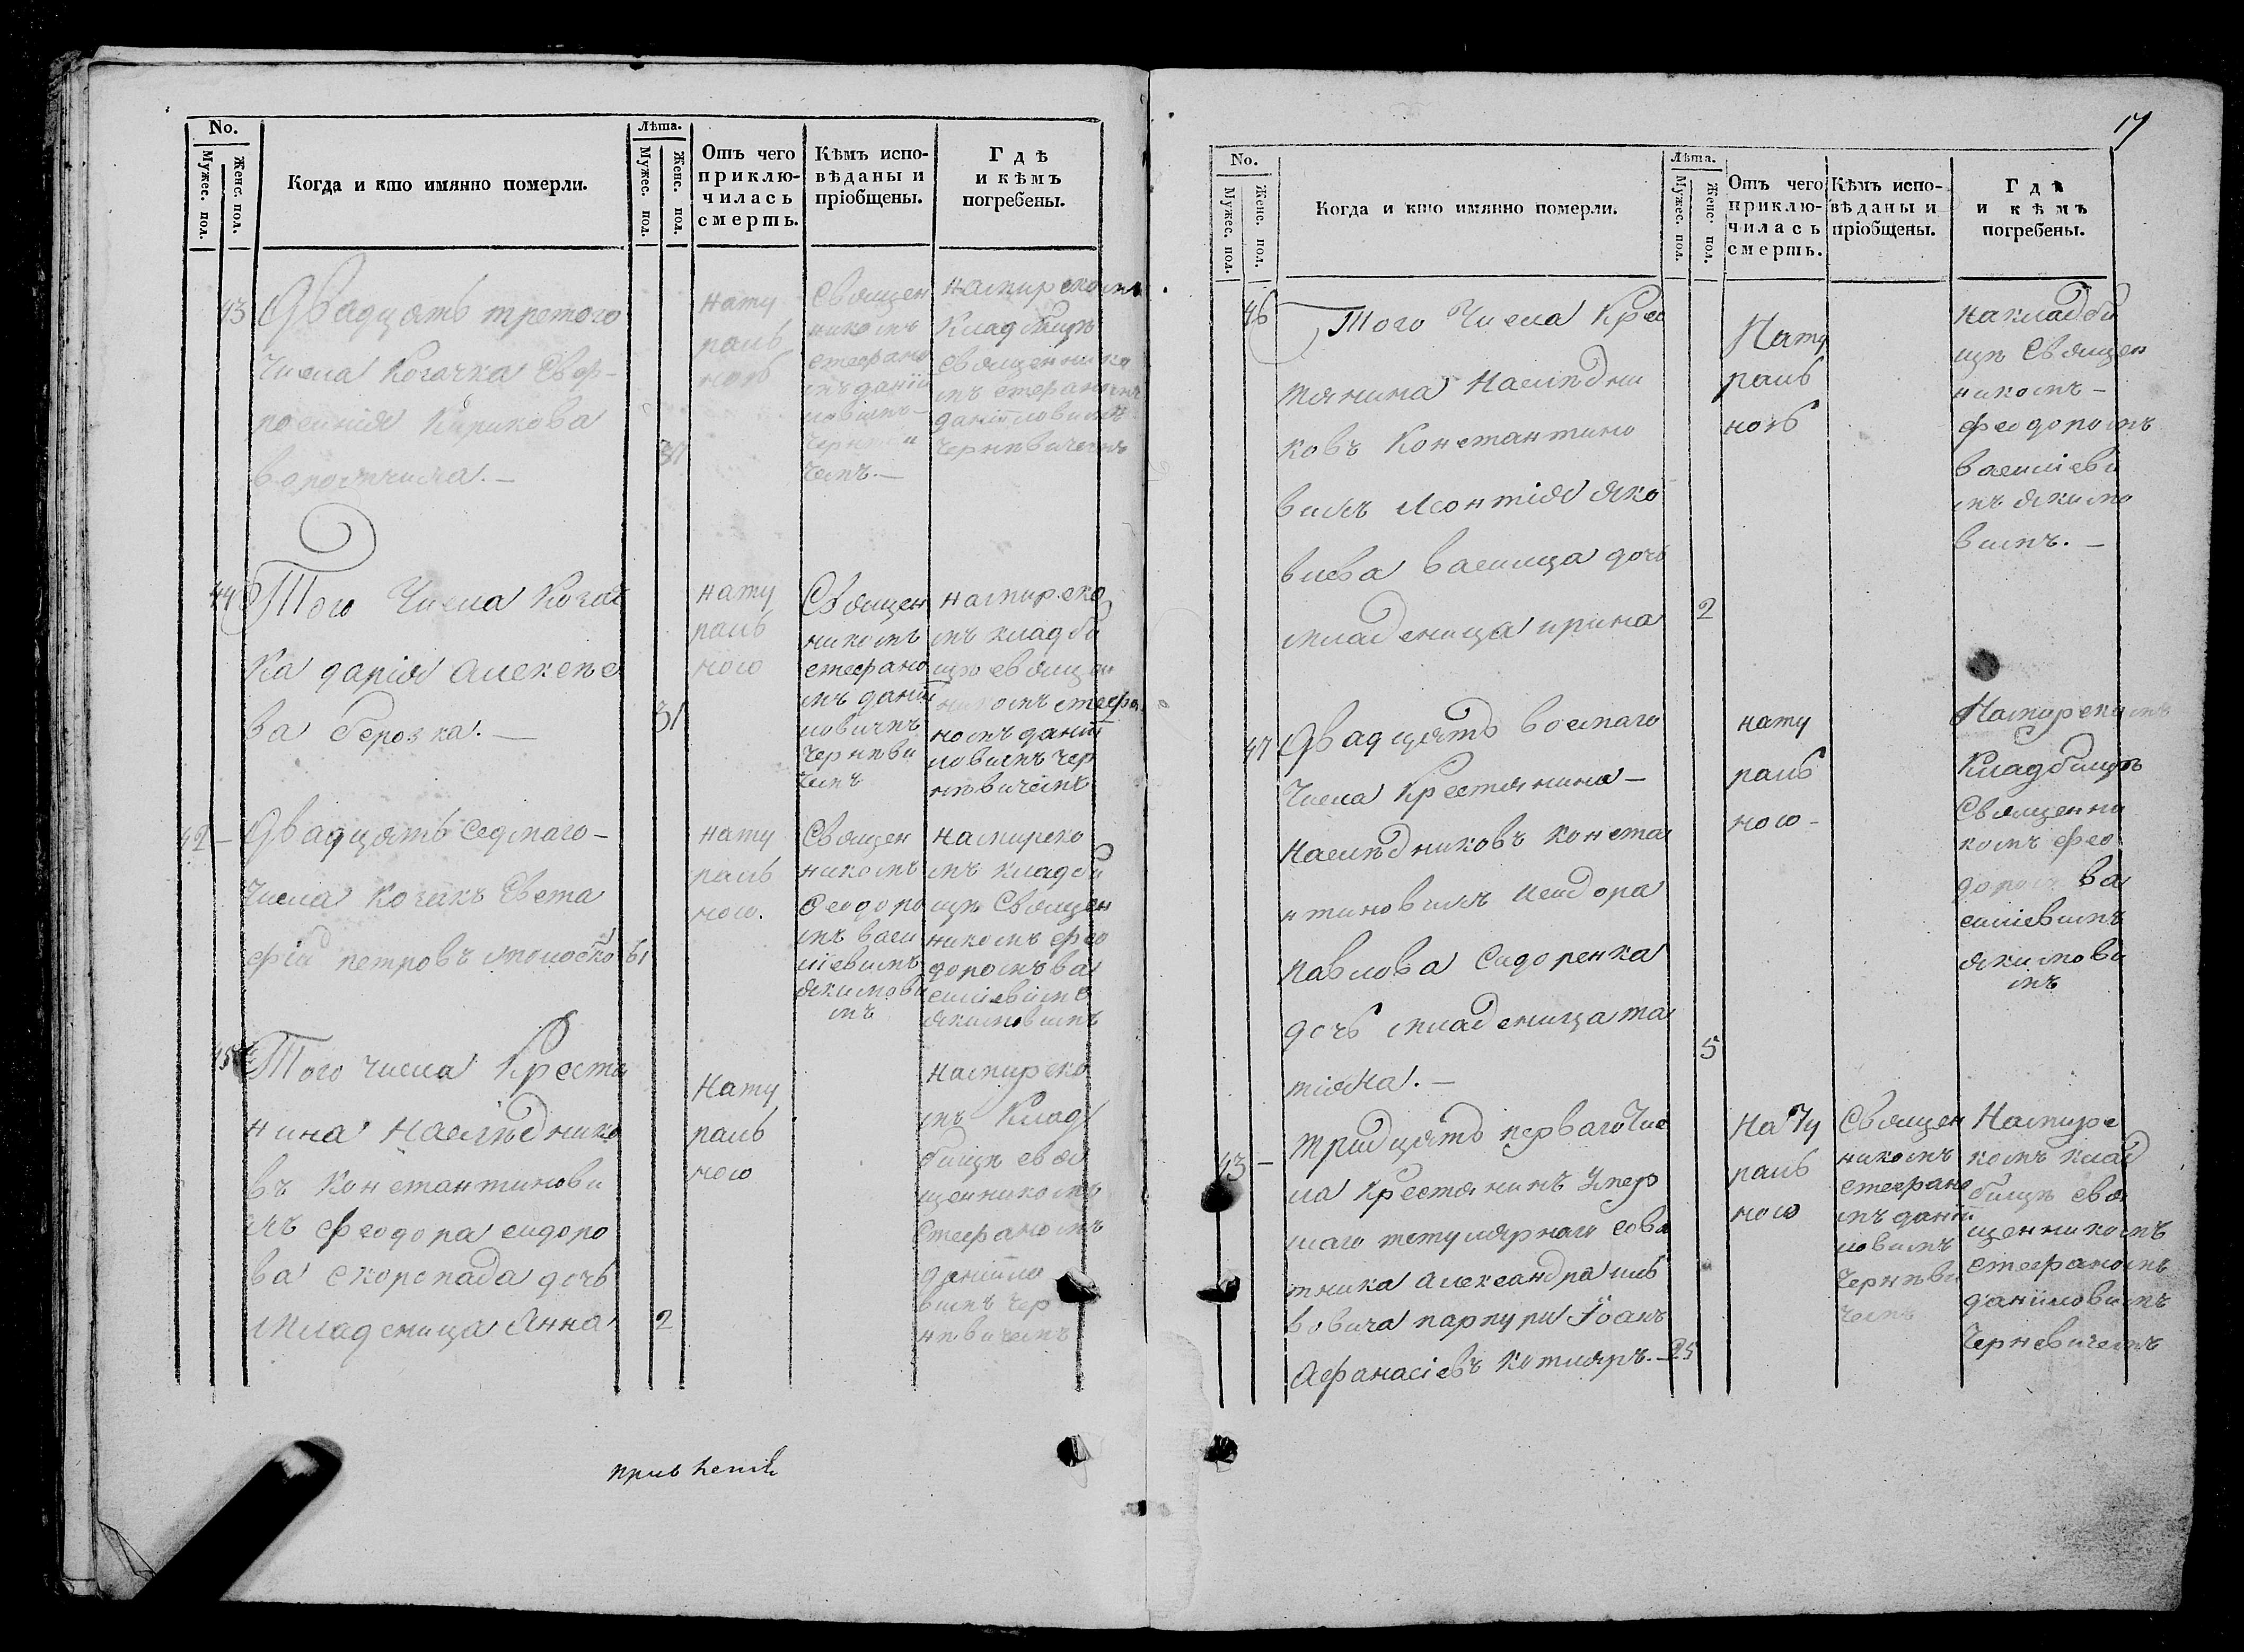 No.
Мужес. пол.
Женс. пол.
Когда и кто имянно померли.
Лѣта.
Мужес. пол.
Женс. пол.
Отъ чего
приклю-
чилась
смерть.
Кѣмъ испо-
вѣданы и
пріобщены.
Гдѣ
и кѣмъ
погребены.
43
Двадцять третого
Числа Козачка Евф-
росинія Кирикова
37
нату
раль
ноб
Священ
никомъ
стефано
мъ даніи
ловимъ
Чернѣви
чемъ.—
намирскомъ
Кладбищѣ
Священнико
мъ стефаномъ
даніиловимъ
Чернѣвичемъ
44
Того Числа Козач
ка дарія Алексѣе
ва березка.—
31
нату
раль
ного
Священ
никомъ
стефано
мъ даніи
ловичъ
Чернѣви
чемъ
намирско
мъ кладби
щѣ священ
никомъ стефа
номъ даніи
ловимъ чер
нѣвичемъ
42 —
Двадцять седмаго —
Числа козакъ Евста
фій петровъ
61
нату
раль
ного.
Священ
никомъ
Феодоро
мъ васи
ліевимъ
якимови
мъ
намирско
мъ кладби
щѣ Священ
никомъ фео
доромъ ва
силіевимъ
якимовимъ
45
Того числа Крестя
нина Наслѣднико
въ Константинови
хъ Феодора сидоро
ва скоропада дочь
младеница Анна
2
Нату
раль
ного
намирско
мъ Клад
бищѣ свя
щенникомъ
Стефаномъ
даніило
вимъ Чер
нѣвичемъ
17
No.
Мужес. пол.
Женс. пол.
Когда и кто имянно померли.
Лѣта.
Мужес. пол.
Женс. пол.
Отъ чего
приклю-
чилась
смерть.
Кѣмъ испо-
вѣданы и
пріобщены.
Гдѣ
и кѣмъ
погребены.
46
Того Числа Крес
тянина Наслѣдни
ковъ Константино
вихъ Леонтія яко
влева василца дочь
младеница ирина
2
Нату
раль
ноб
накладби
щѣ Священ
никомъ —
феодоромъ
василіеви
мъ якимо
вимъ.—
47
Двадцять восмаго
Числа Крестянина —
Наслѣдниковъ конста
нтиновихъ исидора
павлова Сидоренка
дочь младеница та
тіяна.—
5
нату
раль
ного —
Намирскомъ
Кладбищѣ
Священни
комъ фео
доромъ ва
силіевимъ
якимови
мъ
43 —
тридцять перваго Чис
ла Крестянинъ Умер
шаго тетулярнаго сове
тника Александра льв
овича парпури Іоанъ
Афанасіевъ котляръ.—
25
Нату
раль
ного
Священ
никомъ
стефано
мъ даніи
ловимъ
Чернѣви
чемъ
Намирс
комъ клад
бищѣ свя
щенникомъ
стефаномъ
даніиловимъ
Черневичемъ